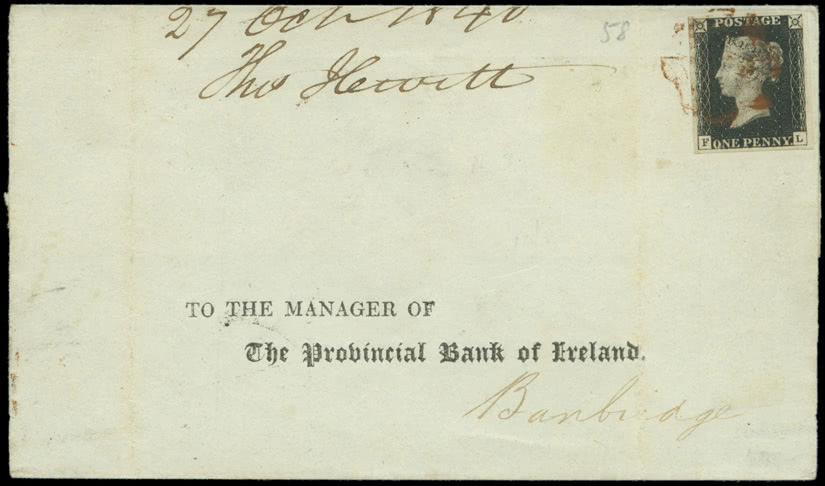 27 Oct 1840
58
Thos Hewitt
POSTAGE
F ONE PENNY L
TO THE MANAGER OF
The Provincial Bank of Ireland.
Banbridge